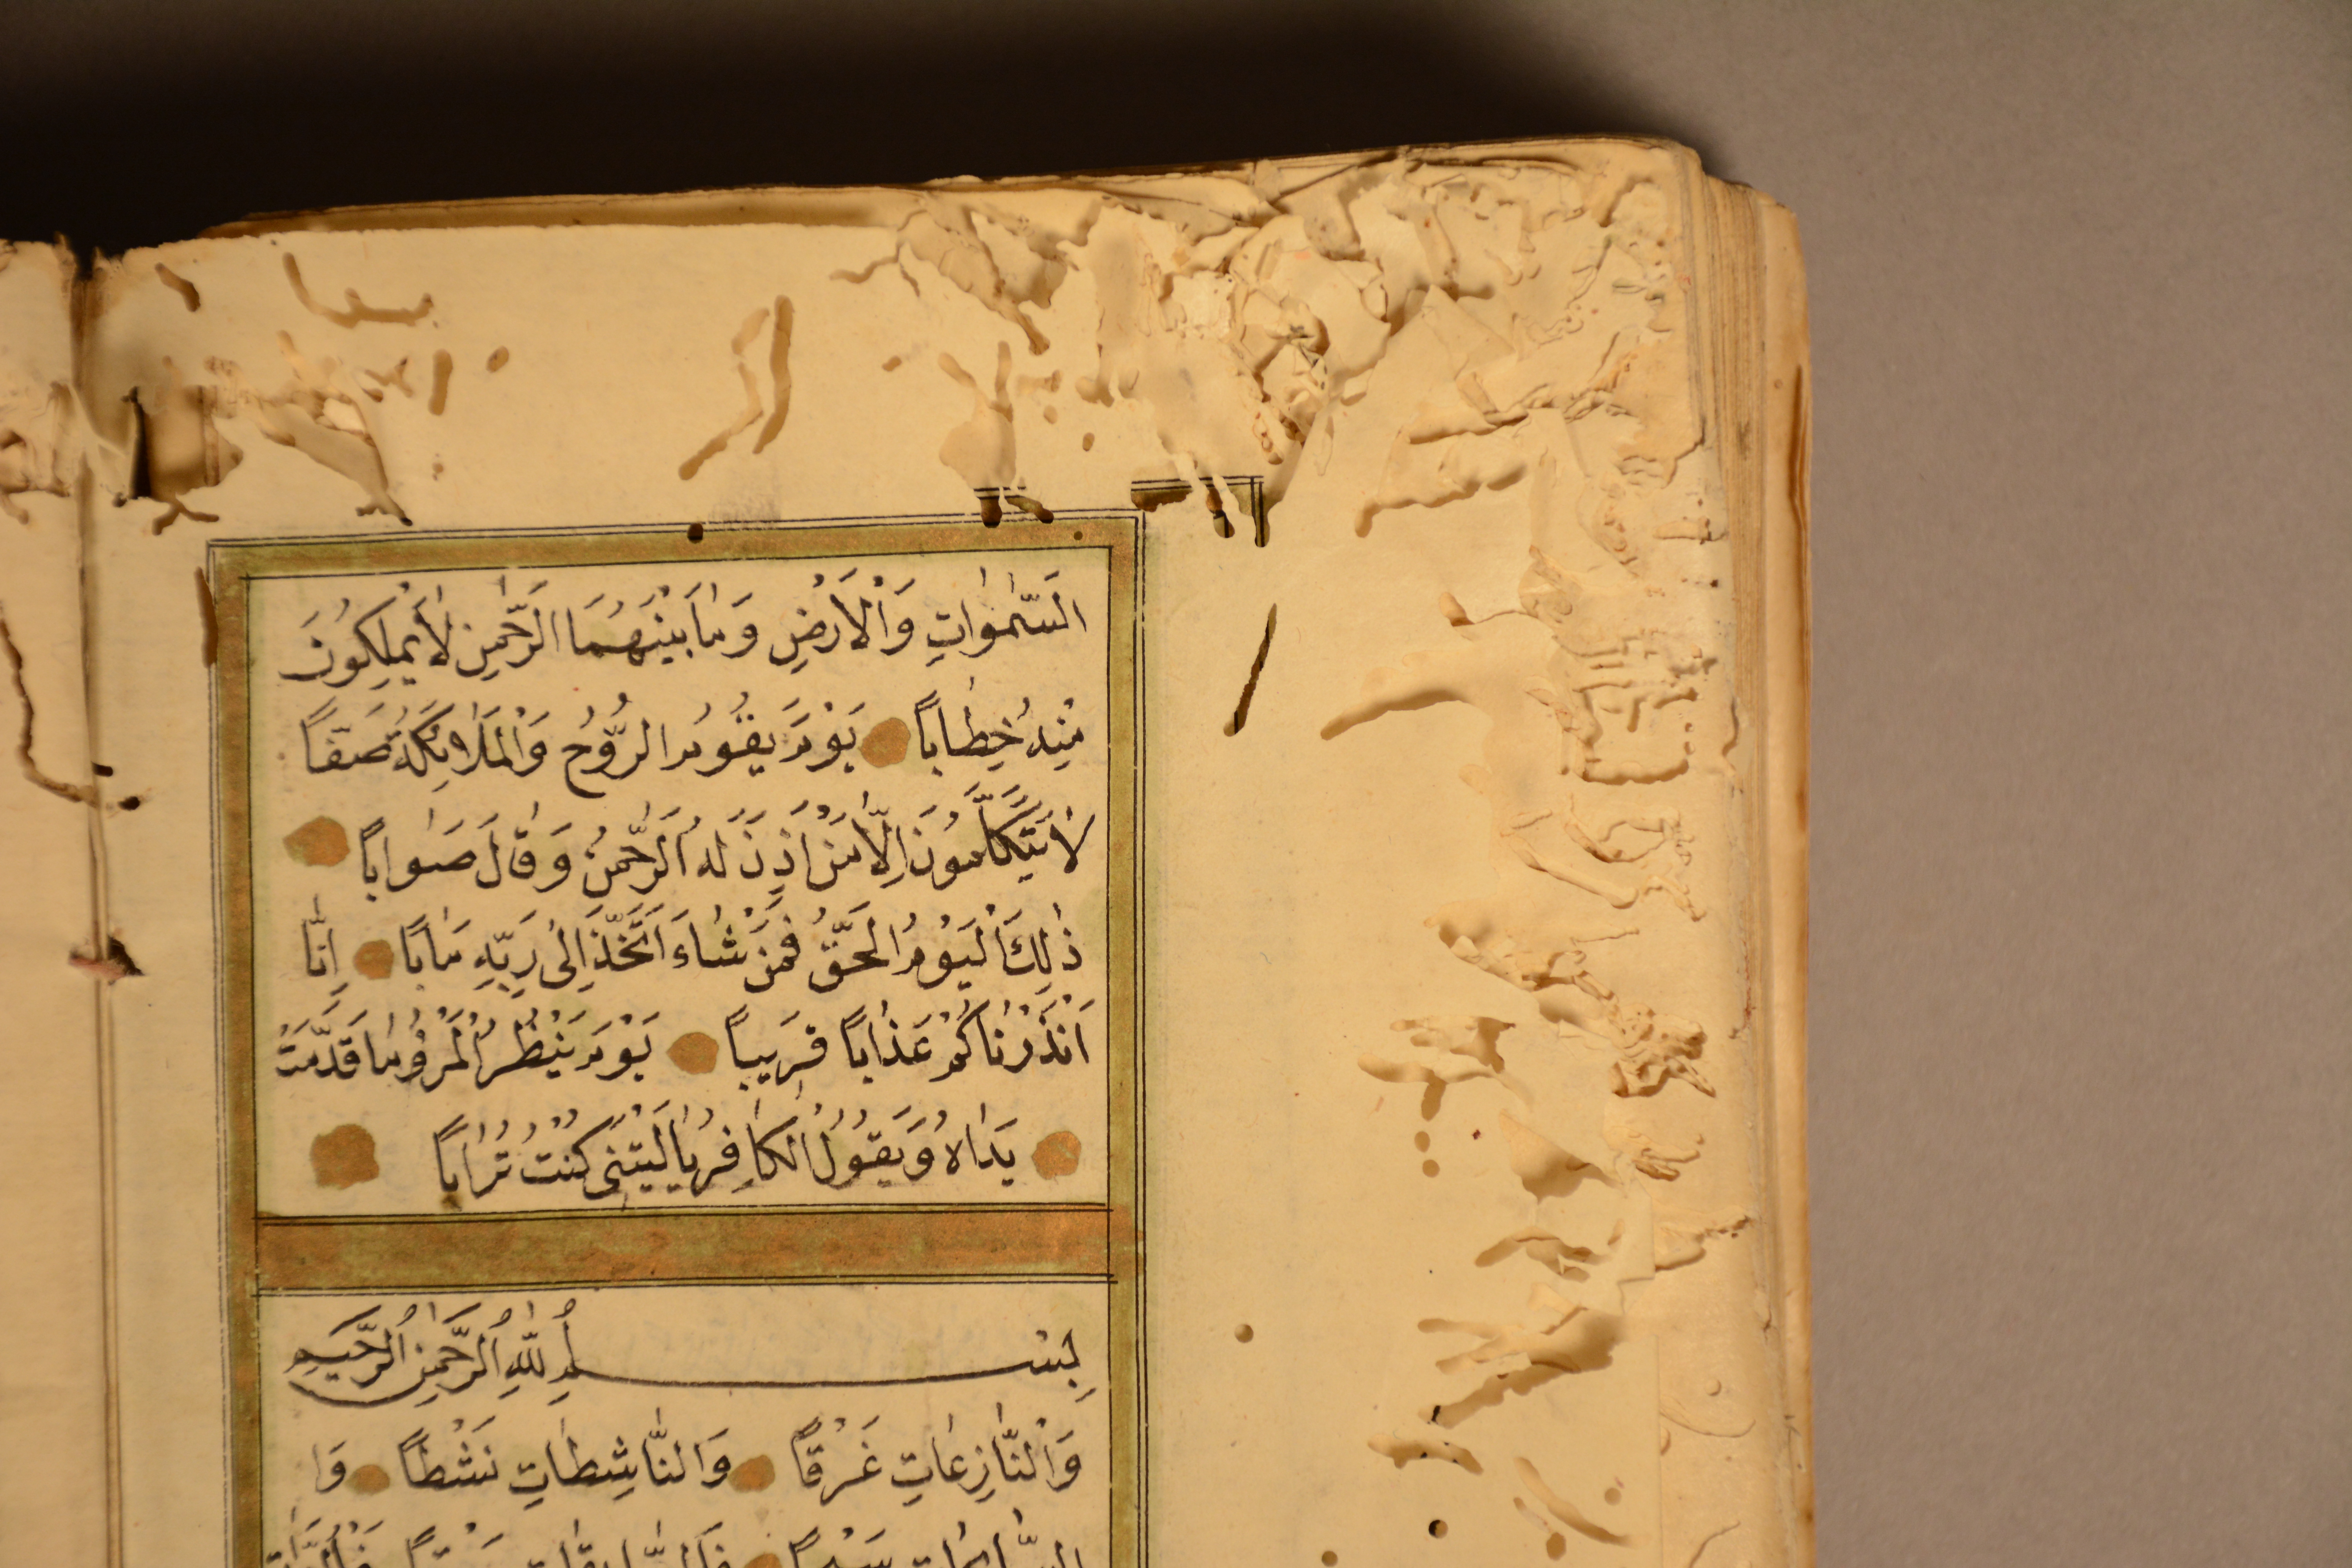 السَّمٰوَاتِ وَالْاَرْضِ وَمَا بَيْنَهُمَا الرَّحْمٰنِ لَا يَمْلِكُونَ
مِنْهُ خِطَابًا يَوْمَ يَقُومُ الرُّوحُ وَالْمَلَائِكَةُ صَفًّا
لَا يَتَكَلَّمُونَ اِلَّا مَنْ اَذِنَ لَهُ الرَّحْمٰنُ وَقَالَ صَوَابًا
ذٰلِكَ الْيَوْمُ الْحَقُّ فَمَنْ شَاءَ اتَّخَذَ اِلٰى رَبِّهِ مَاٰبًا اِنَّا
اَنْذَرْنَاكُمْ عَذَابًا قَرِيبًا يَوْمَ يَنْظُرُ الْمَرْءُ مَا قَدَّمَتْ
يَدَاهُ وَيَقُولُ الْكَافِرُ يَا لَيْتَنِى كُنْتُ تُرَابًا
بِسْمِ اللّٰهِ الرَّحْمٰنِ الرَّحِيمِ
وَالنَّازِعَاتِ غَرْقًا وَالنَّاشِطَاتِ نَشْطًا وَا